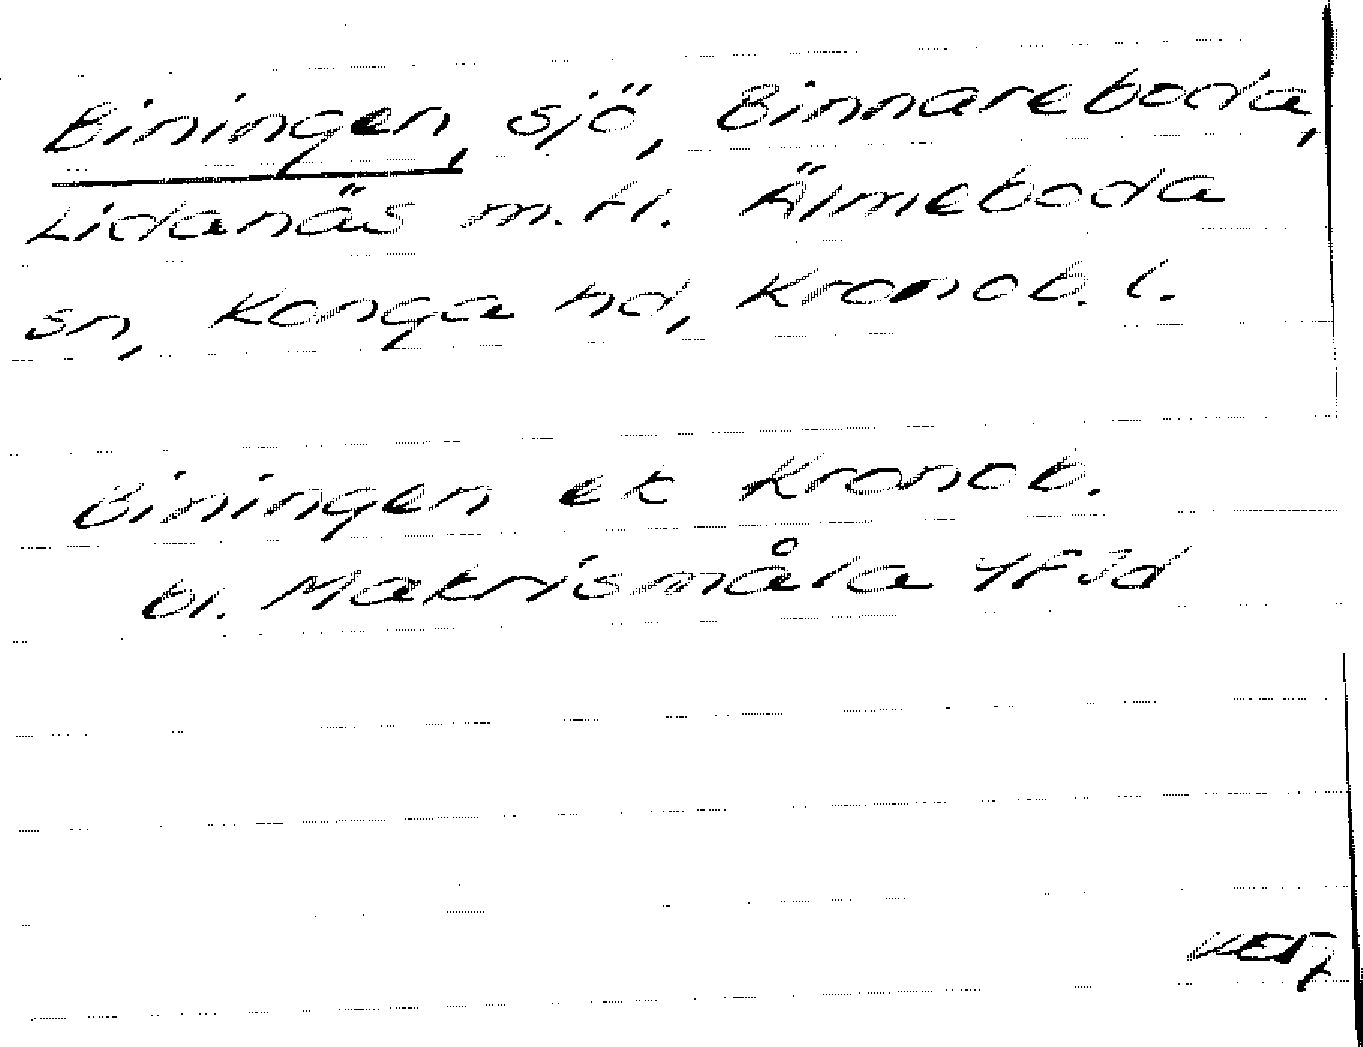 Biningen, sjö, Binnareboda,
Lidanäs m.fl. Älmeboda
sn, Konga hd, Kronob. l.
Biningen ek Kronob.
bl. Makrismåla 4F3d